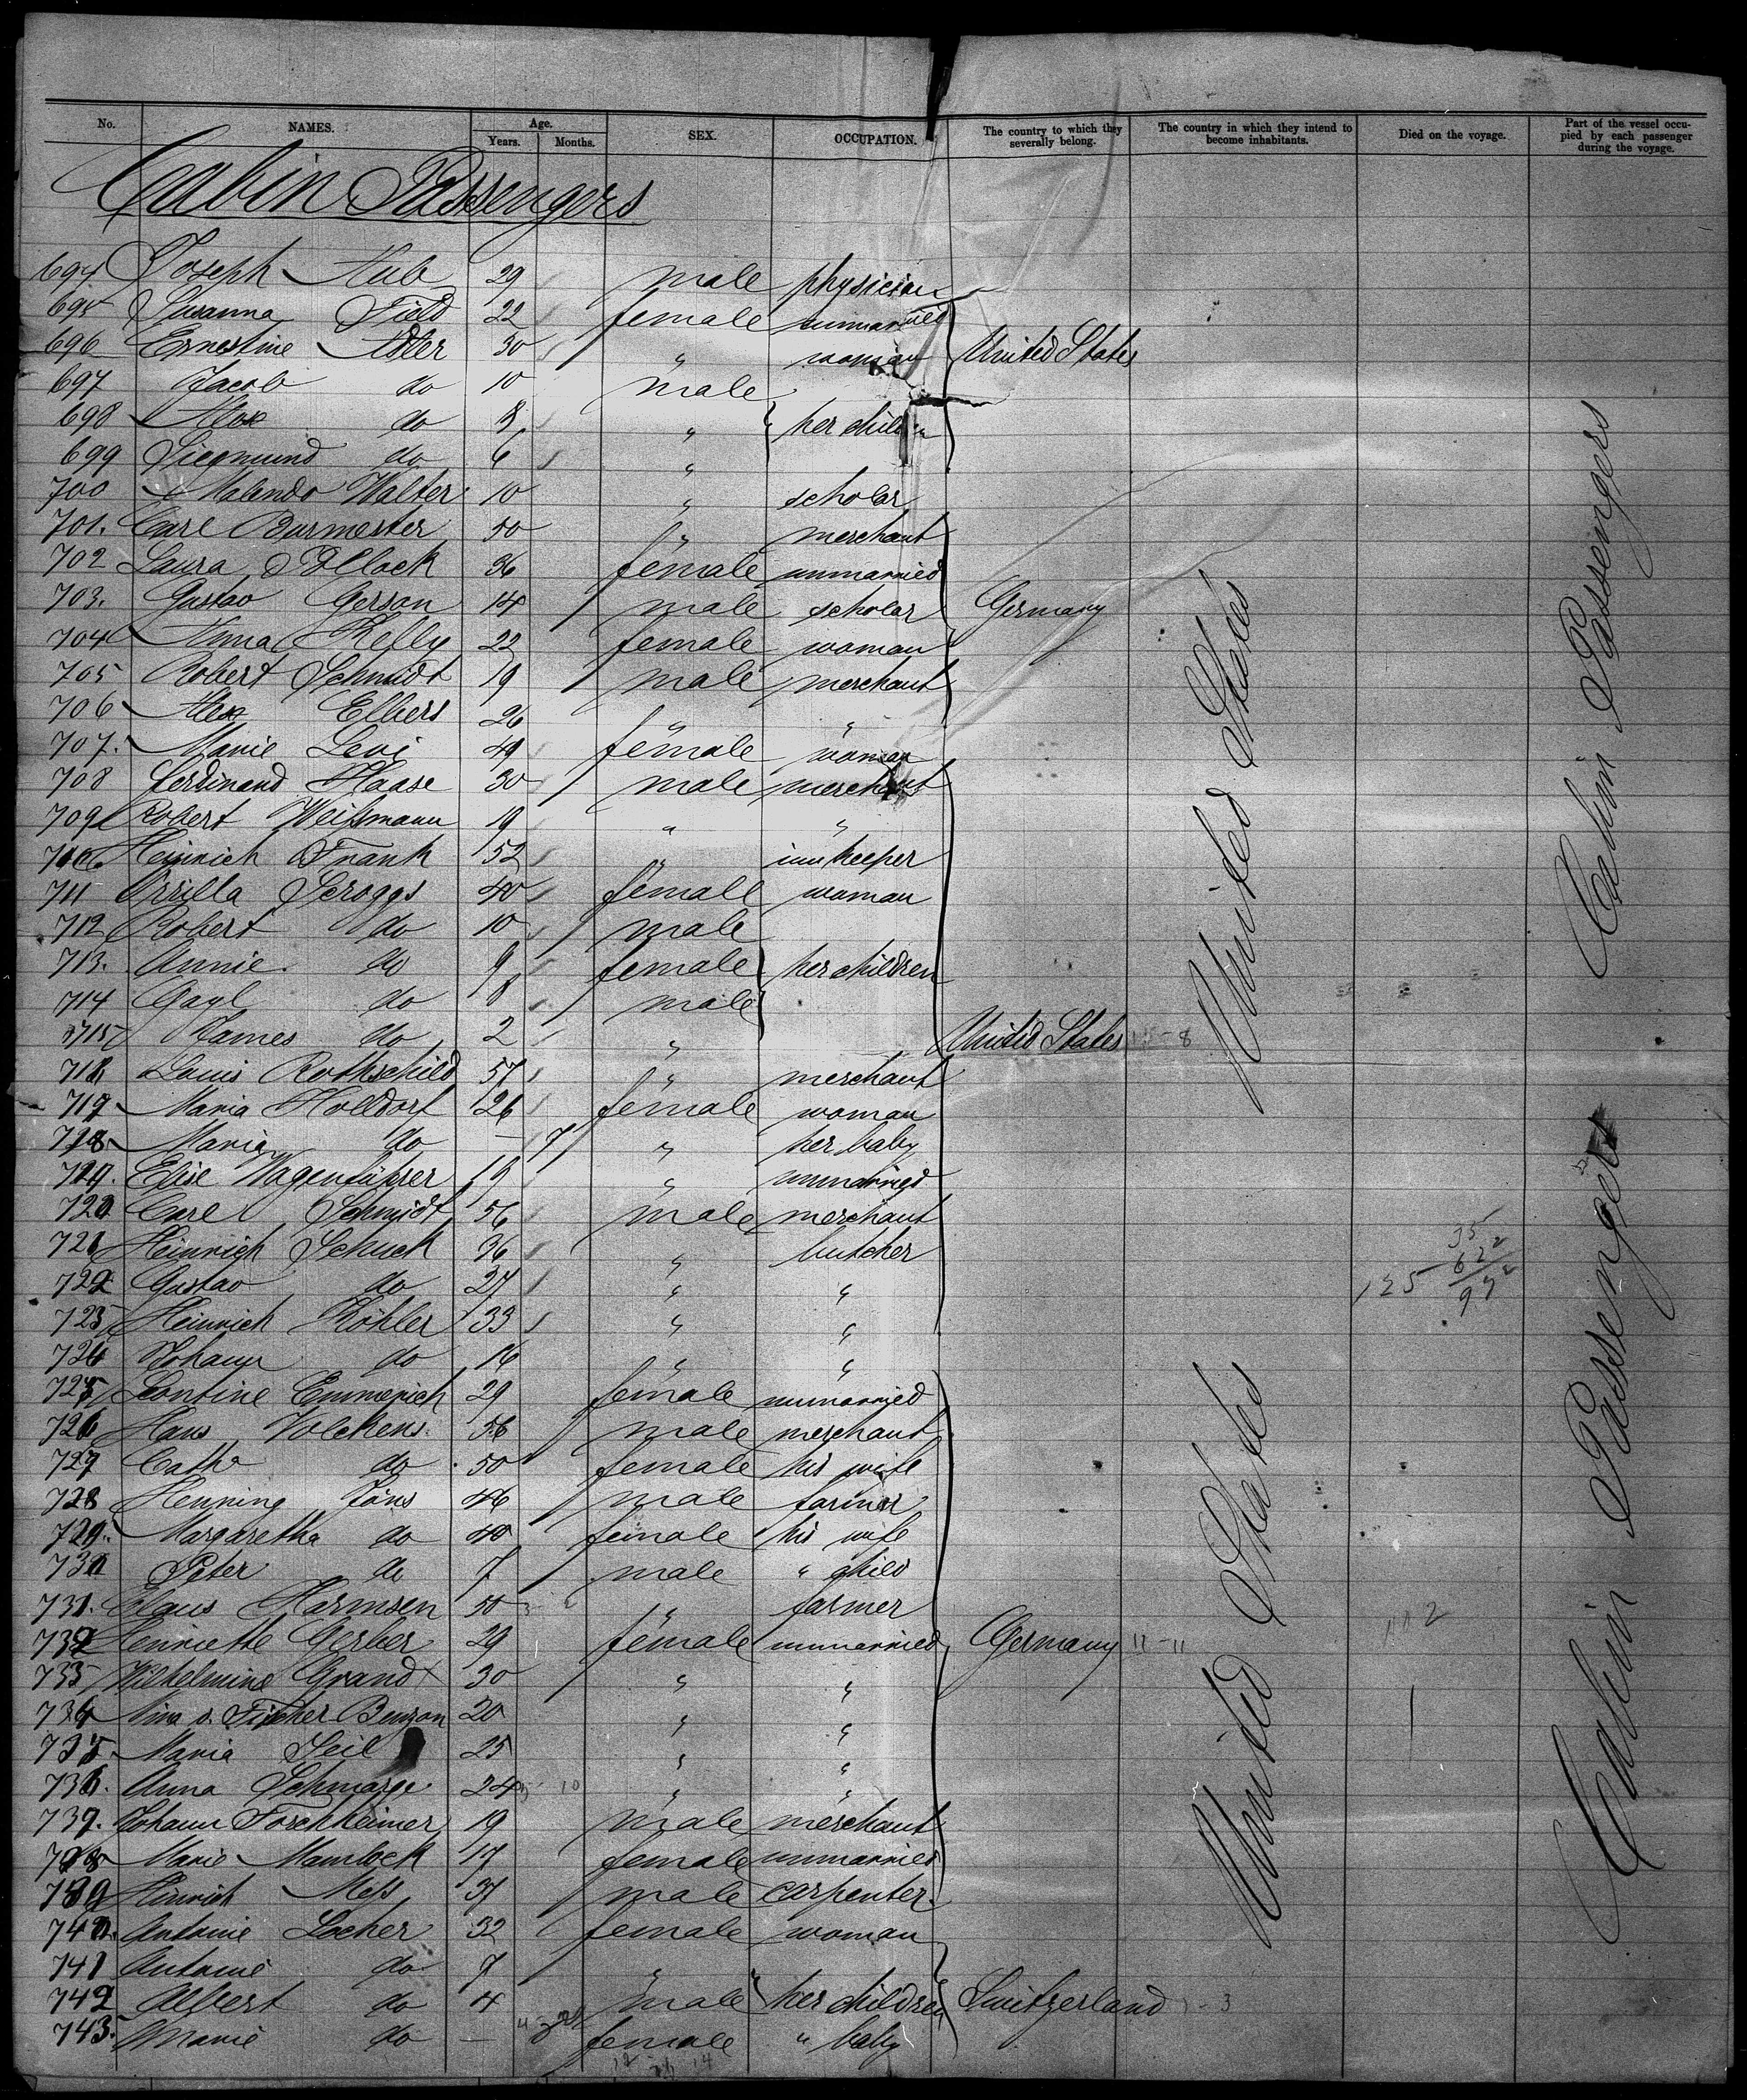 No. NAMES. Age. Years. Months. SEX. OCCUPATION. The country to which they severally belong. The country in which they intend to become inhabitants. Died on the voyage. Part of the vessel occupied by each passenger during the voyage.
Cabin Passengers
694 Joseph Aub 29 male physician
695 Susanna Field 22 female unmarried
696 Ernestine Adler 30 " woman United States
697 Jacob do 10 male
698 Alex do 8 " her children
699 Siegmund do 6 "
700 Malando Walter 10 " scholar
701. Carl Burmester 50 " merchant
702 Laura Pollack 36 female unmarried
703. Gustav Gerson 14 male scholar Germany
704 Anna Kelly 22 female woman
705 Robert Schmidt 19 male merchant
706 Alex Elbers 26 " "
707. Marie Levi 49 female woman
708 Ferdinand Haase 30 male merchant
709 Robert Weißmann 19 " "
710 Heinrich Frank 52 " innkeeper
711 Orrilla Scroggs 40 female woman
712 Robert do 10 male
713. Annie do 9 female her children
714 Gayl do 8 male
715 James do 2 " United States - 8
716 Louis Rothschild 57 " merchant
717 Maria Holldorf 26 female woman
718 Maria do — 7 " her baby
719. Elise Wagenführer 19 " unmarried
720 Carl Schmidt 56 male merchant
721 Heinrich Schuck 36 " butcher
722 Gustav do 27 " "
723 Heinrich Köhler 33 " "
724 Johann do 16 " "
725 Leontine Emmerich 29 female unmarried
726 Hans Volckens 56 male merchant
727 Cath do 50 female his wife
728 Henning Jöns 46 male farmer
729. Margaretha do 40 female his wife
730 Peter do 7 male " child
731. Claus Harmsen 50 " farmer
732 Henriette Gerber 29 female unmarried Germany 11-11
733 Wilhelmine Grandt 30 " "
734 Nina v. Fischer Benzon 20 " "
735 Maria Seil 25 " "
736. Anna Schmarge 24 " "
737. Johann Forchheimer 19 male merchant
738 Marie Mamlock 17 female unmarried
739 Hinrich Meß 37 male carpenter
740. Antonie Locher 32 female woman
741 Antonie do 7 "
742 Albert do 4 male her children Switzerland - 3
743. Marie do — female " baby
United States
United States
Cabin Passengers
Cabin Passengers
35
622
125
972